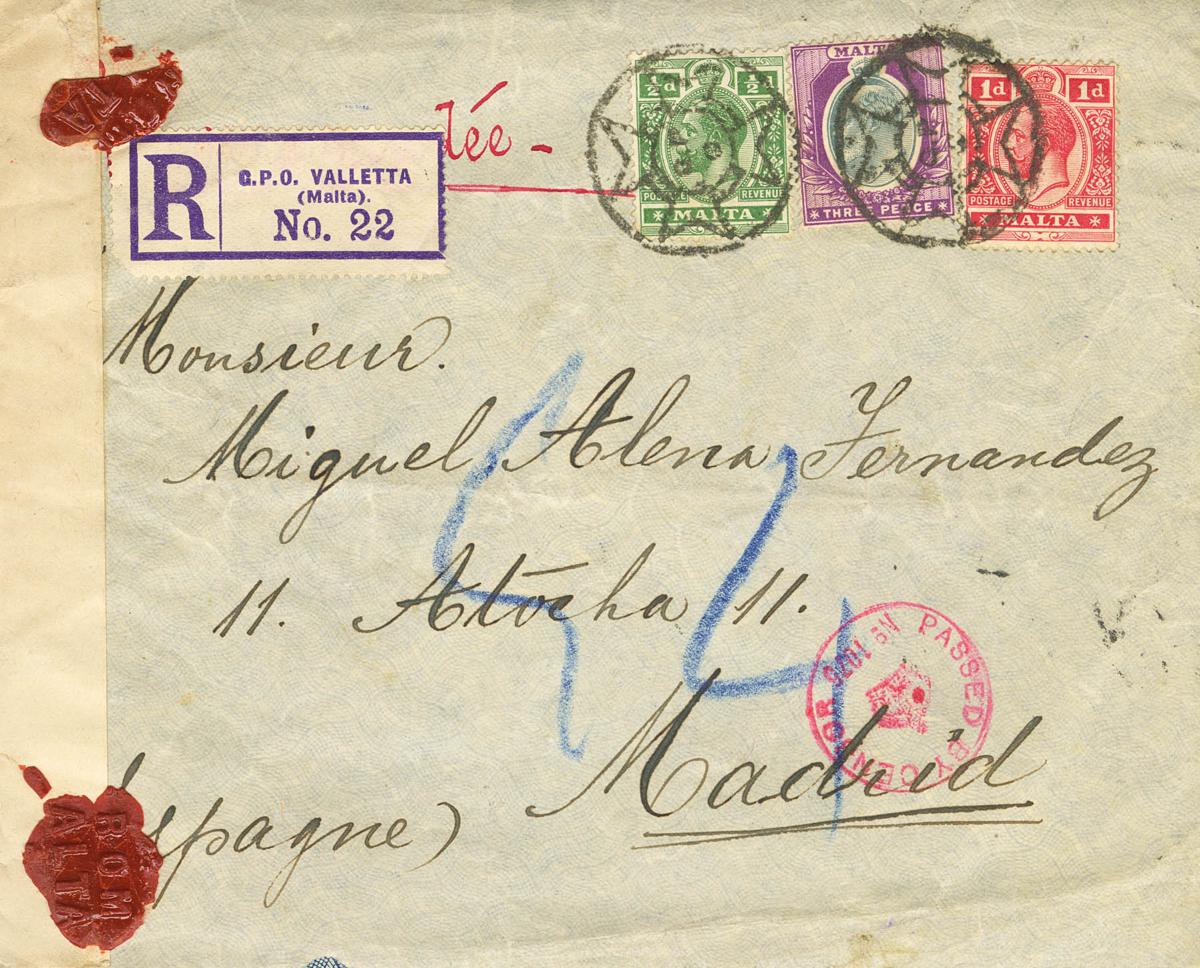 dée -
R
G.P.O. VALLETTA
(Malta).
No. 22
1/2d 1/2
POSTAGE REVENUE
MALTA
MALTA
THREE PENCE
1d 1d
POSTAGE REVENUE
MALTA
Monsieur.
Miguel Alena Fernandez
11. Atocha 11.
Madrid
spagne)
PASSED BY CENSOR
ROM
ALTA
TA